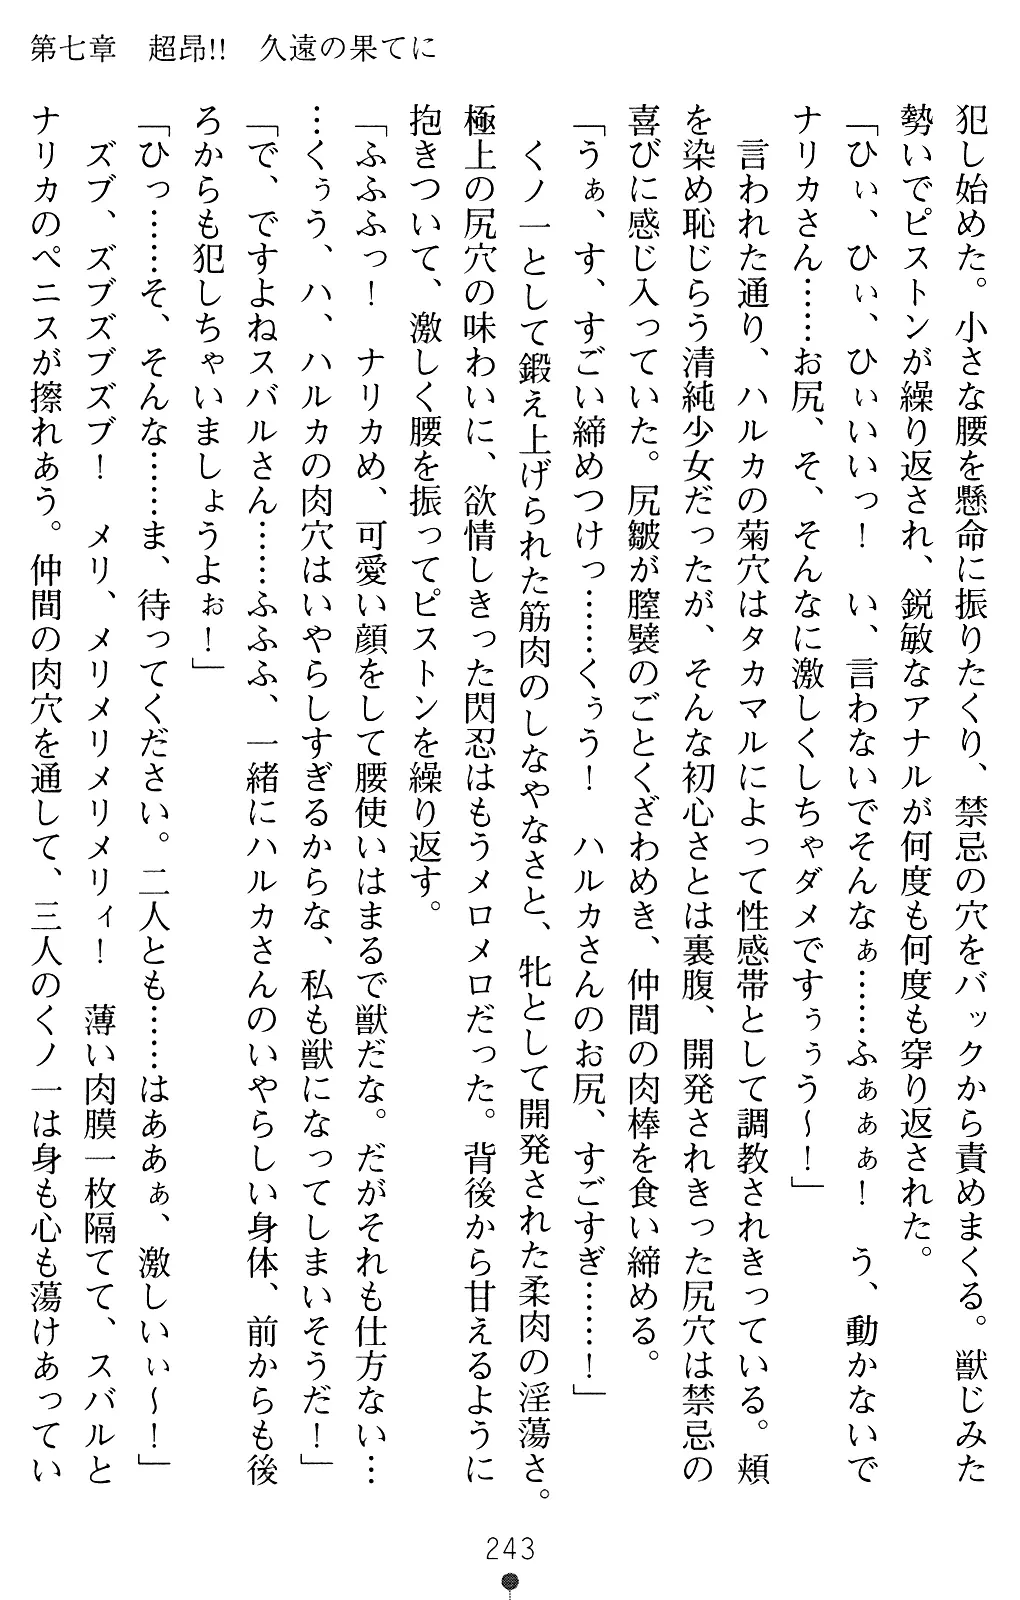 第七章　超昂!!　久遠の果てに
犯し始めた。小さな腰を懸命に振りたくり、禁忌の穴をバックから責めまくる。獣じみた
勢いでピストンが繰り返され、鋭敏なアナルが何度も何度も穿り返された。
「ひぃ、ひぃ、ひぃいいっ！　い、言わないでそんなぁ……ふぁぁぁ！　う、動かないで
ナリカさん……お尻、そ、そんなに激しくしちゃダメですぅぅう～！」
　言われた通り、ハルカの菊穴はタカマルによって性感帯として調教されきっている。頬
を染め恥じらう清純少女だったが、そんな初心さとは裏腹、開発されきった尻穴は禁忌の
喜びに感じ入っていた。尻皺が膣襞のごとくざわめき、仲間の肉棒を食い締める。
「うぁ、す、すごい締めつけっ……くぅう！　ハルカさんのお尻、すごすぎ……！」
　くノ一として鍛え上げられた筋肉のしなやなさと、牝として開発された柔肉の淫蕩さ。
極上の尻穴の味わいに、欲情しきった閃忍はもうメロメロだった。背後から甘えるように
抱きついて、激しく腰を振ってピストンを繰り返す。
「ふふふっ！　ナリカめ、可愛い顔をして腰使いはまるで獣だな。だがそれも仕方ない…
…くぅう、ハ、ハルカの肉穴はいやらしすぎるからな、私も獣になってしまいそうだ！」
「で、ですよねスバルさん……ふふふ、一緒にハルカさんのいやらしい身体、前からも後
ろからも犯しちゃいましょうよぉ！」
「ひっ……そ、そんな……ま、待ってください。二人とも……はああぁ、激しいぃ～！」
　ズブ、ズブズブズブ！　メリ、メリメリメリメリィ！　薄い肉膜一枚隔てて、スバルと
ナリカのペニスが擦れあう。仲間の肉穴を通して、三人のくノ一は身も心も蕩けあってい
243